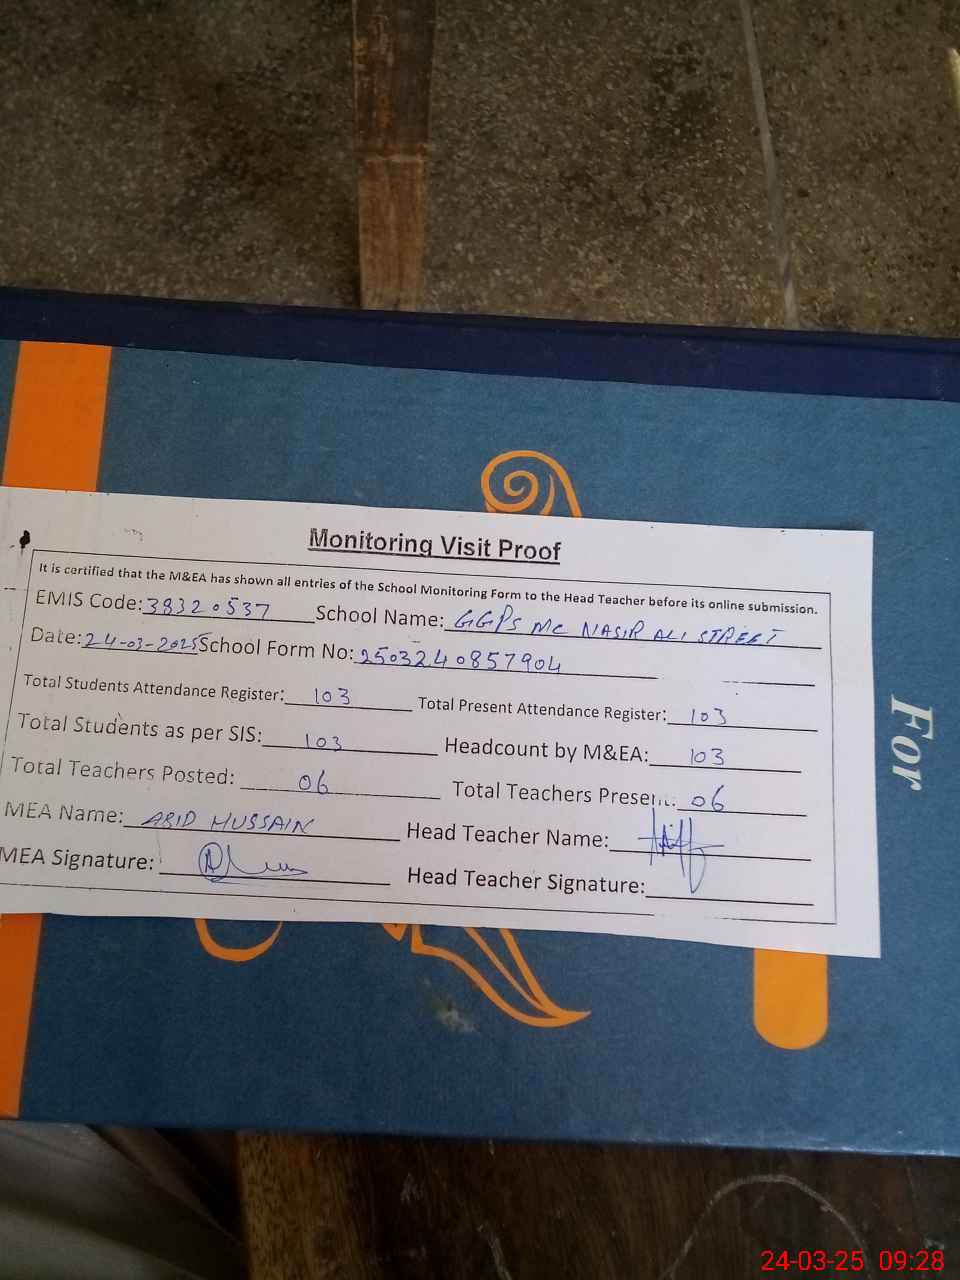 Monitoring Visit Proof
It is certified that the M&EA has shown all entries of the School Monitoring Form to the Head Teacher before its online submission.
EMIS Code: 38320537 School Name: GGPS MC NASIR ALI STREET
Date: 24-03-2025 School Form No: 2503240857904
Total Students Attendance Register: 103 Total Present Attendance Register: 103
Total Students as per SIS: 103 Headcount by M&EA: 103
Total Teachers Posted: 06 Total Teachers Present: 06
MEA Name: ABID HUSSAIN Head Teacher Name:
MEA Signature: Head Teacher Signature:
For
24-03-25 09:28